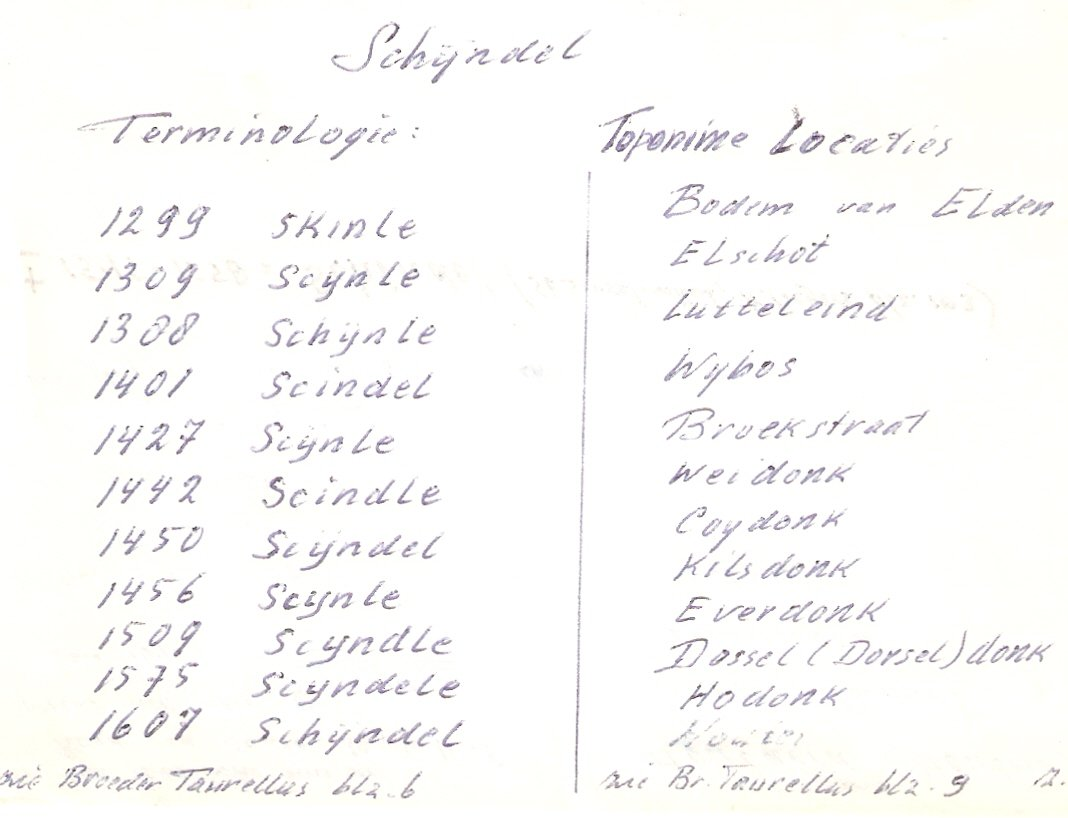 Schijndel
Terminologie:
1299 Skinle
1309 Scijnle
1388 Schijnle
1401 Scindel
1427 Scijnle
1442 Scindle
1450 Scijndel
1456 Scijnle
1509 Scijndle
1575 Scijndele
1607 Schijndel
zie Broeder Taurellus blz. 6
Toponime Locaties
Bodem van Elden
Elschot
Lutteleind
Wybos
Broekstraat
Weidonk
Coydonk
Kilsdonk
Everdonk
Dossel (Dorsel) donk
Hodonk
zie Br. Taurellus blz. 9